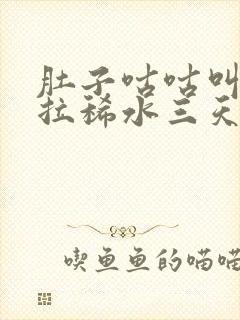 肚子咕咕叫
拉稀水三天
喫鱼鱼的喵喵